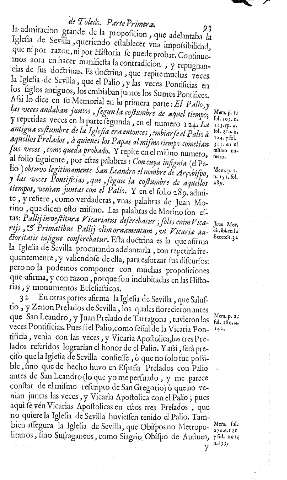 de Toledo. Parte Primera. 93
la admiracion grande de la proposicion, que adelantaba la
Iglesia de Sevilla, queriendo establecer una impossibilidad,
que ni por razon, ni por Historia se puede probar. Continuemos
aora en hacer manifiesta la contradicion, y repugnancias
de sus doctrinas. Es doctrina, que repite muchas veces
la Iglesia de Sevilla, que el Palio, y las veces Pontificias en
los siglos antiguos, los embiaban juntos los Santos Pontifices.
Assi lo dice en su Memorial en la primera parte: El Palio, y
las veces andaban juntos, segun la costumbre de aquel tiempo;
y repetidas veces en la parte segunda, en el numero
antigua costumbre de la Iglesia era entonces, embiarse el Palio à
aquellos Prelados, à quienes los Papas al mismo tiempo cometian
sus veces, como queda probado. Y repite en el mismo numero,
al folio siguiente, por estas palabras: Con cuya insignia (el Palio)
obtuvo legitimamente San Leandro el nombre de Arzobispo,
y las veces Pontificias, que, segun la costumbre de aquellos
tiempos, venian juntas con el Palio. Y en el folio 289. admite,
y refiere, como verdaderas, unas palabras de Juan Morino,
que dicen esto mismo. Las palabras de Morino son estas:
Pallij investitura Vicariatus deferebatur; solis enim Vicarijs,
& Primatibus Pallij olim ornamentum, ex Vicaria authoritatis
insigne conferebatur. Esta doctrina es la que afirma
la Iglesia de Sevilla procurando adelantarla, con repetirla frequentemente,
y valiendose de ella, para esforzar sus discursos:
pero no la podemos componer con muchas proposiciones
que afirma, y con razon, porque son indubitadas en las Historias,
y monumentos Eclesiasticos.
32 En otras partes afirma la Iglesia de Sevilla, que Salustio,
y Zenon Prelados de Sevilla, los quales florecieron antes
que San Leandro, y Juan Prelado de Tarragona, tuvieron las
veces Pontificias. Pues si el Palio, como señal de la Vicaria Pontificia,
venia con las veces, y Vicaria Apostolica, los tres Prelados
referidos lograrian el honor de el Palio. Y assi, serà preciso
que la Iglesia de Sevilla confiesse, ò que no solo fue possible,
sino que de hecho huvo en España Prelados con Palio
antes de San Leandro (lo que yo me persuado, y me parece
constar de el mismo rescripto de San Gregorio) ò que no venian
juntas las veces, y Vicaria Apostolica con el Palio; pues
aqui se vèn Vicarias Apostolicas en estos tres Prelados, que
no quiere la Iglesia de Sevilla huviessen tenido el Palio. Tambien
assegura la Iglesia de Sevilla, que Obispos no Metropolitanos,
sino Sufraganeos, como Siagrio Obispo de Autúno,
y